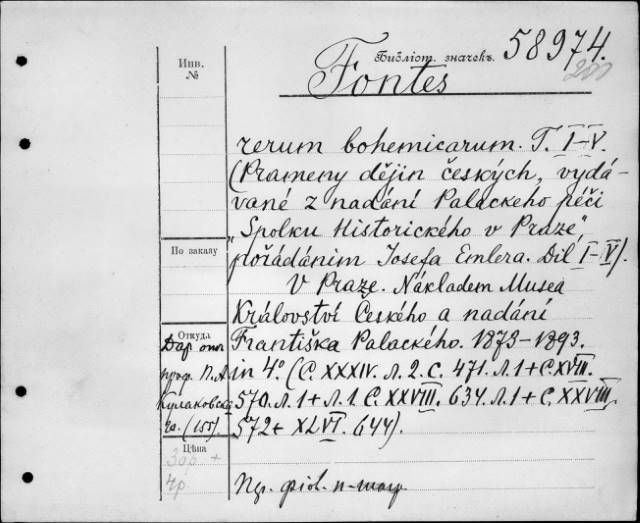 Инв. №
Библіот. значекъ. 58974.
Fontes
rerum bohemicarum. T. I–V.
(Prameny dějin českých, vydá-
vané z nadání Palackeho péči
„Spolku Historického v Praze",
pořádáním Josefa Emlera. Díl I–V).
V Praze. Nákladem Musea
Království Českého a nadání
Františka Palackého. 1873–1893.
in 4°. (С. XXXIV. л. 2. с. 471. л. 1 + С. XVIII.
570. л. 1 + л. 1 С. XXVIII. 634. л. 1 + С. XXVIII.
572 + XLVI. 644).
По заказу
Откуда
Дар отъ
проф. П. А.
Кулаковска-
го. (155).
Цѣна
30р +
4р.